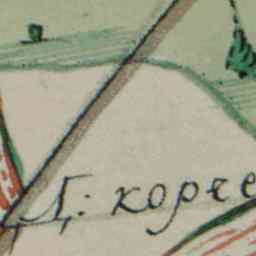 Д: корче